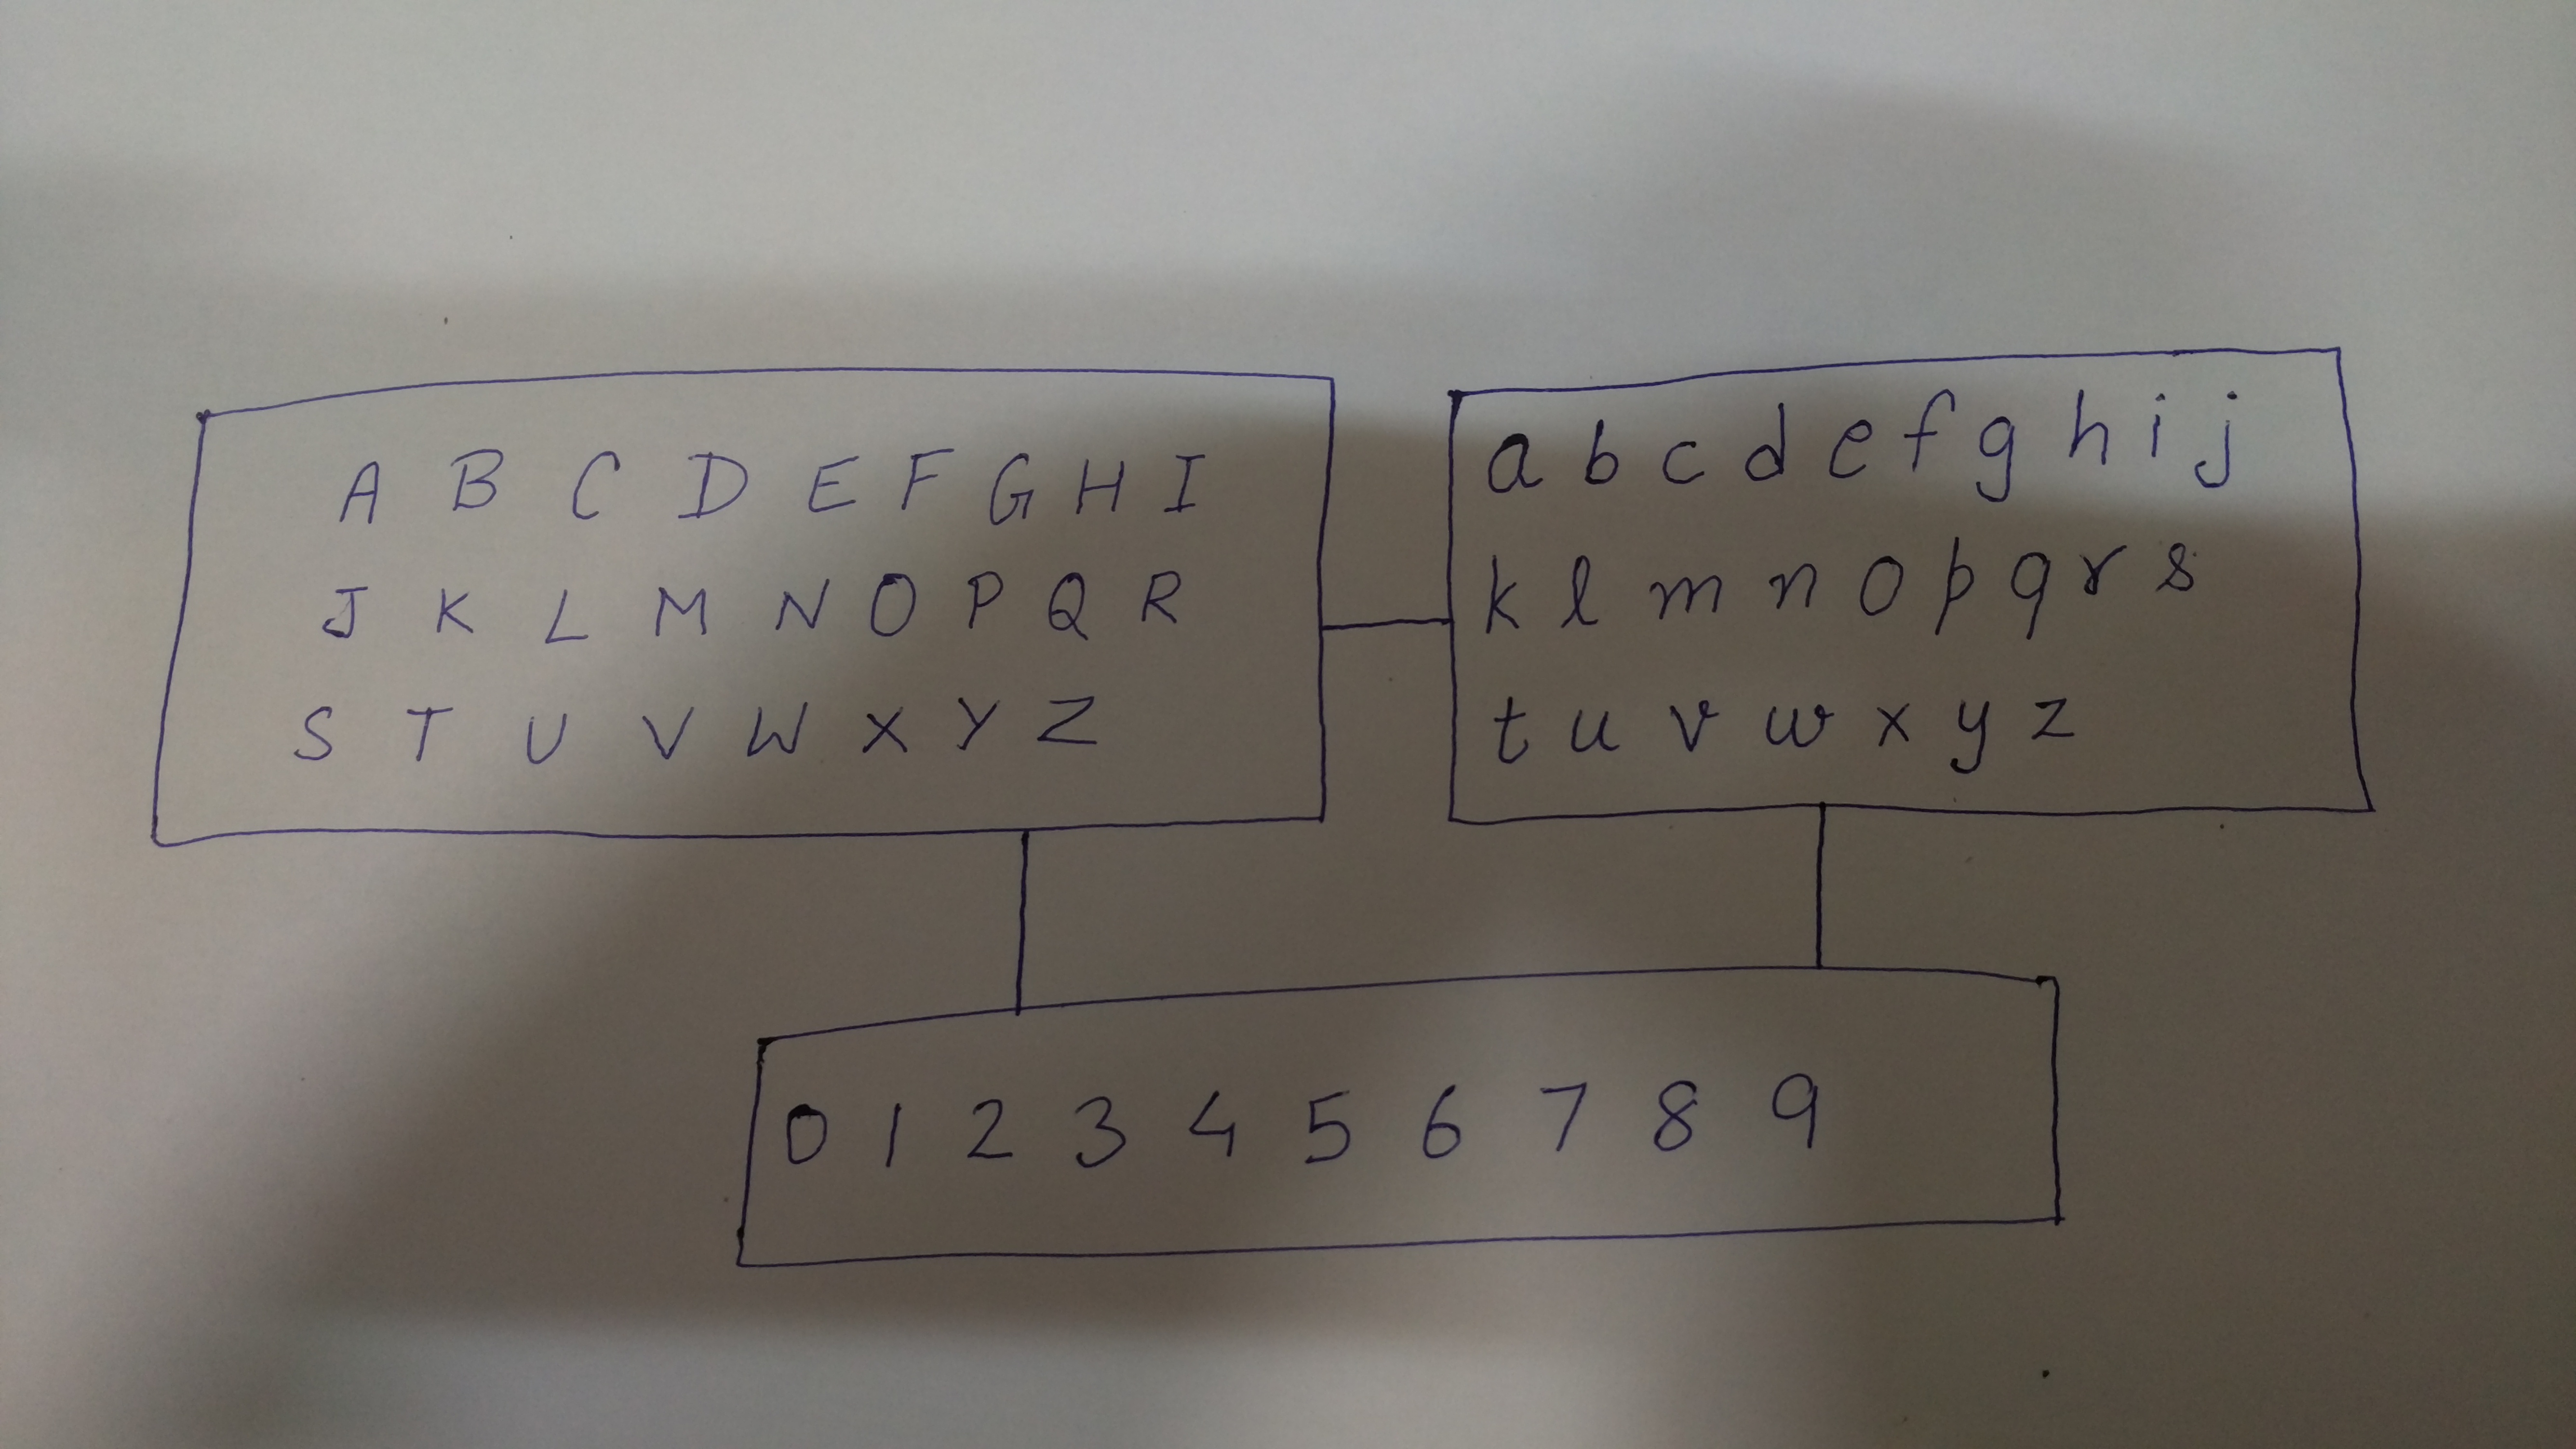 A B C D E F G H I
J K L M N O P Q R
S T U V W X Y Z
a b c d e f g h i j
k l m n o p q r s
t u v w x y z
0 1 2 3 4 5 6 7 8 9